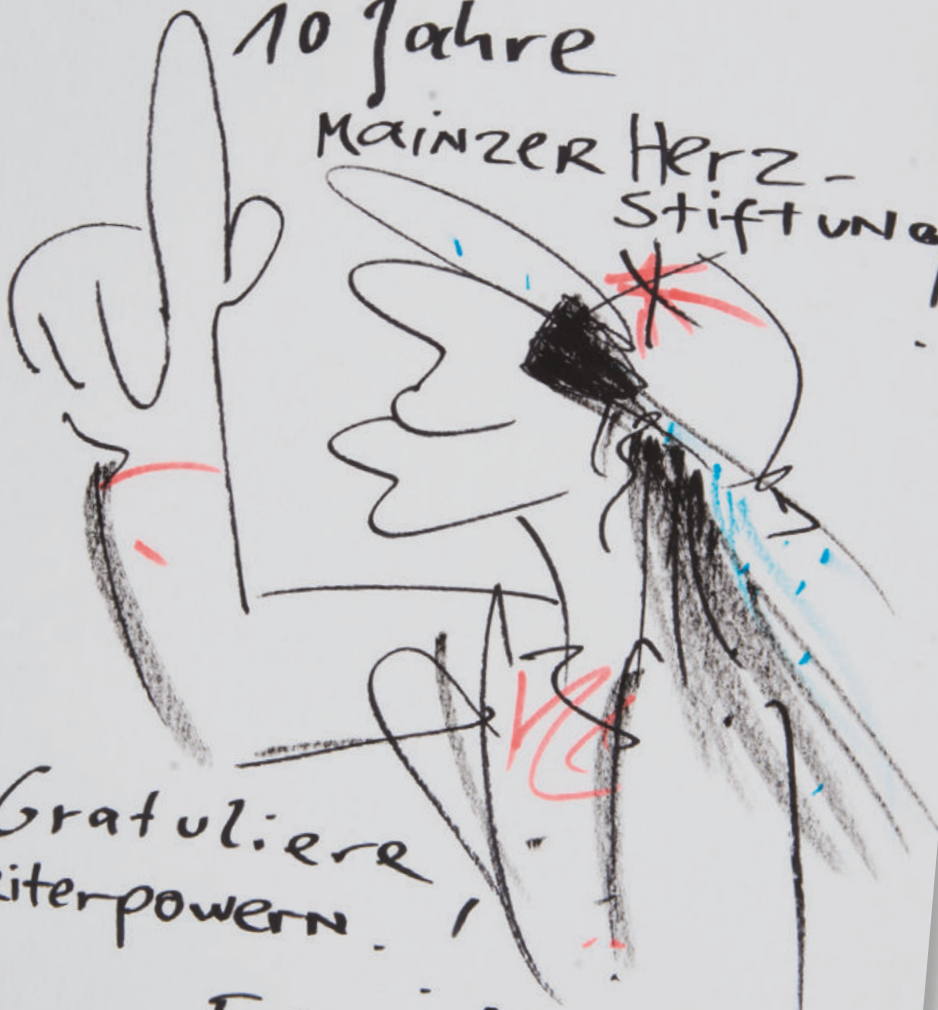 10 Jahre
Mainzer Herz-
Stiftung!
Gratuliere
eiterpowern!